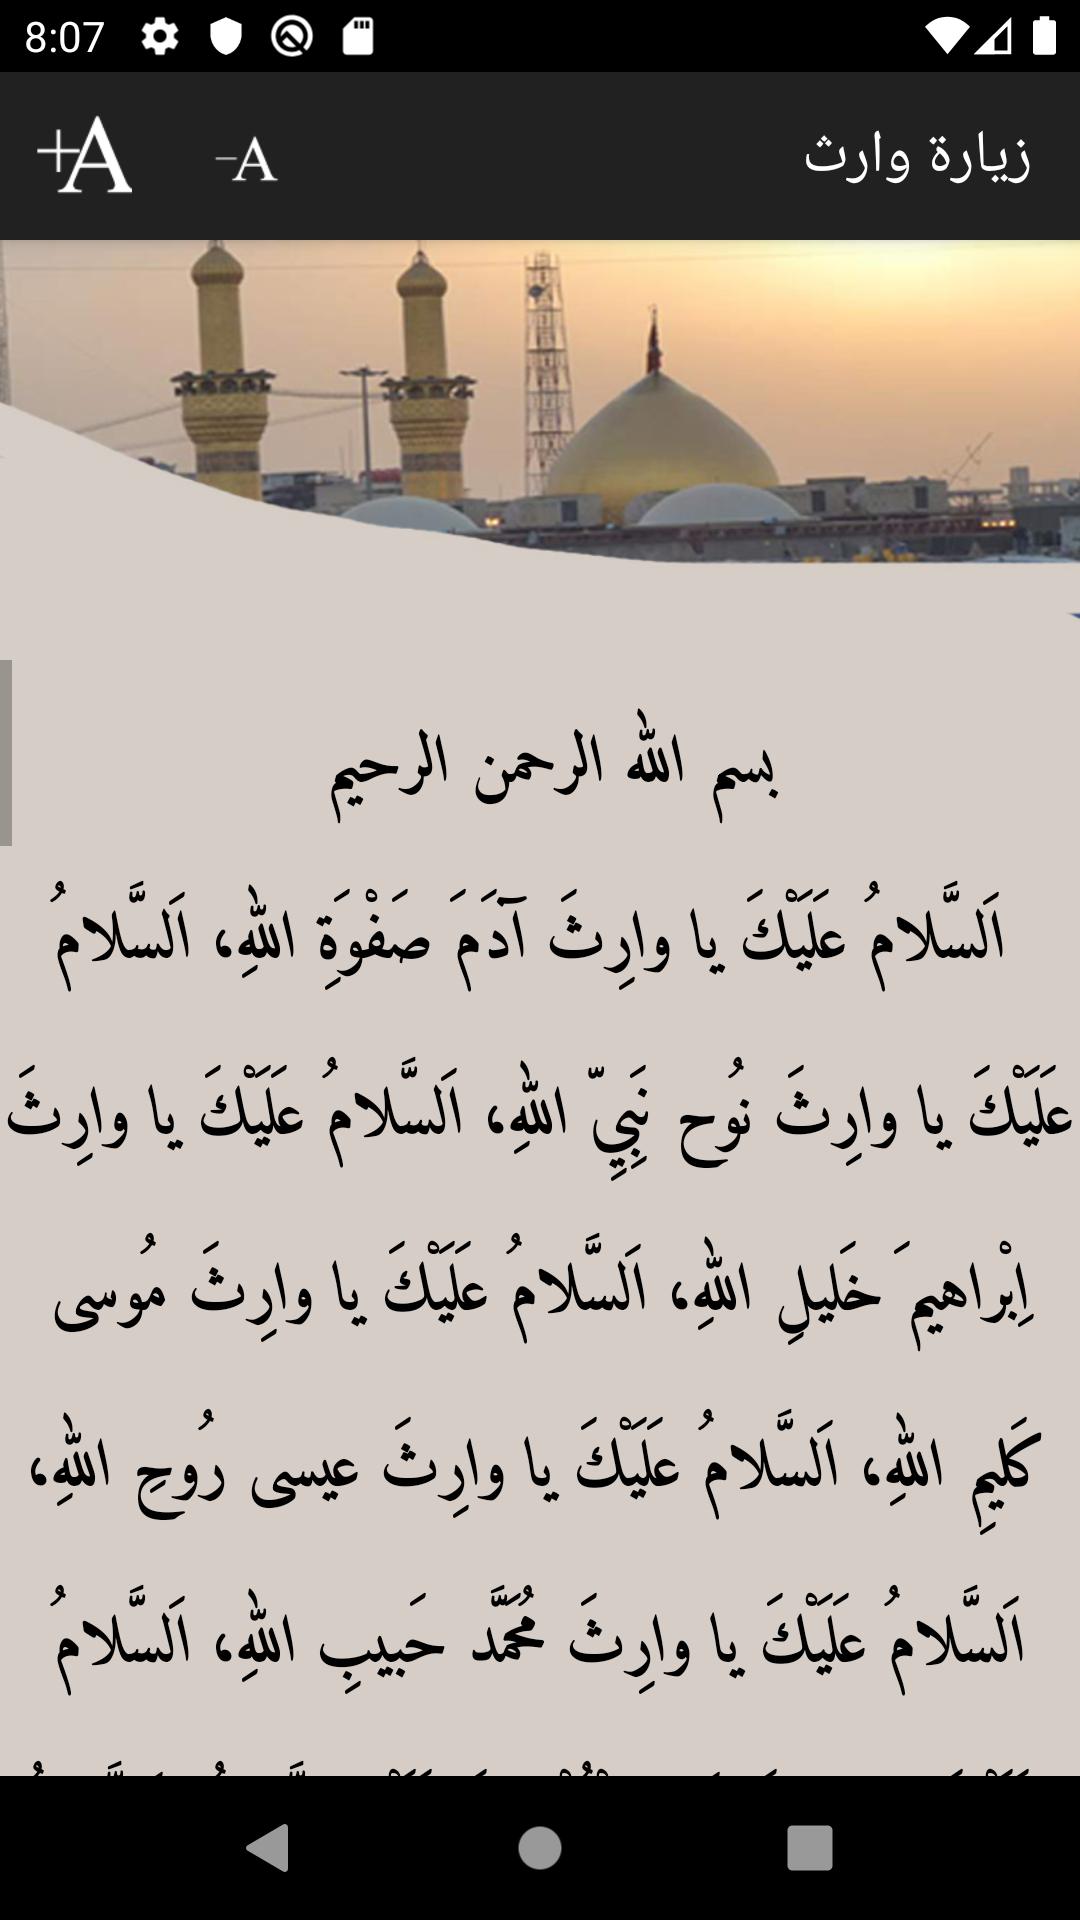 8:07
+A -A زيارة وارث
بسم الله الرحمن الرحيم
اَلسَّلامُ عَلَيْكَ يا وارِثَ آدَمَ صَفْوَةِ اللهِ، اَلسَّلامُ
عَلَيْكَ يا وارِثَ نُوح نَبِيِّ اللهِ، اَلسَّلامُ عَلَيْكَ يا وارِثَ
اِبْراهيمَ خَليلِ اللهِ، اَلسَّلامُ عَلَيْكَ يا وارِثَ مُوسى
كَليمِ اللهِ، اَلسَّلامُ عَلَيْكَ يا وارِثَ عيسى رُوحِ اللهِ،
اَلسَّلامُ عَلَيْكَ يا وارِثَ مُحَمَّد حَبيبِ اللهِ، اَلسَّلامُ